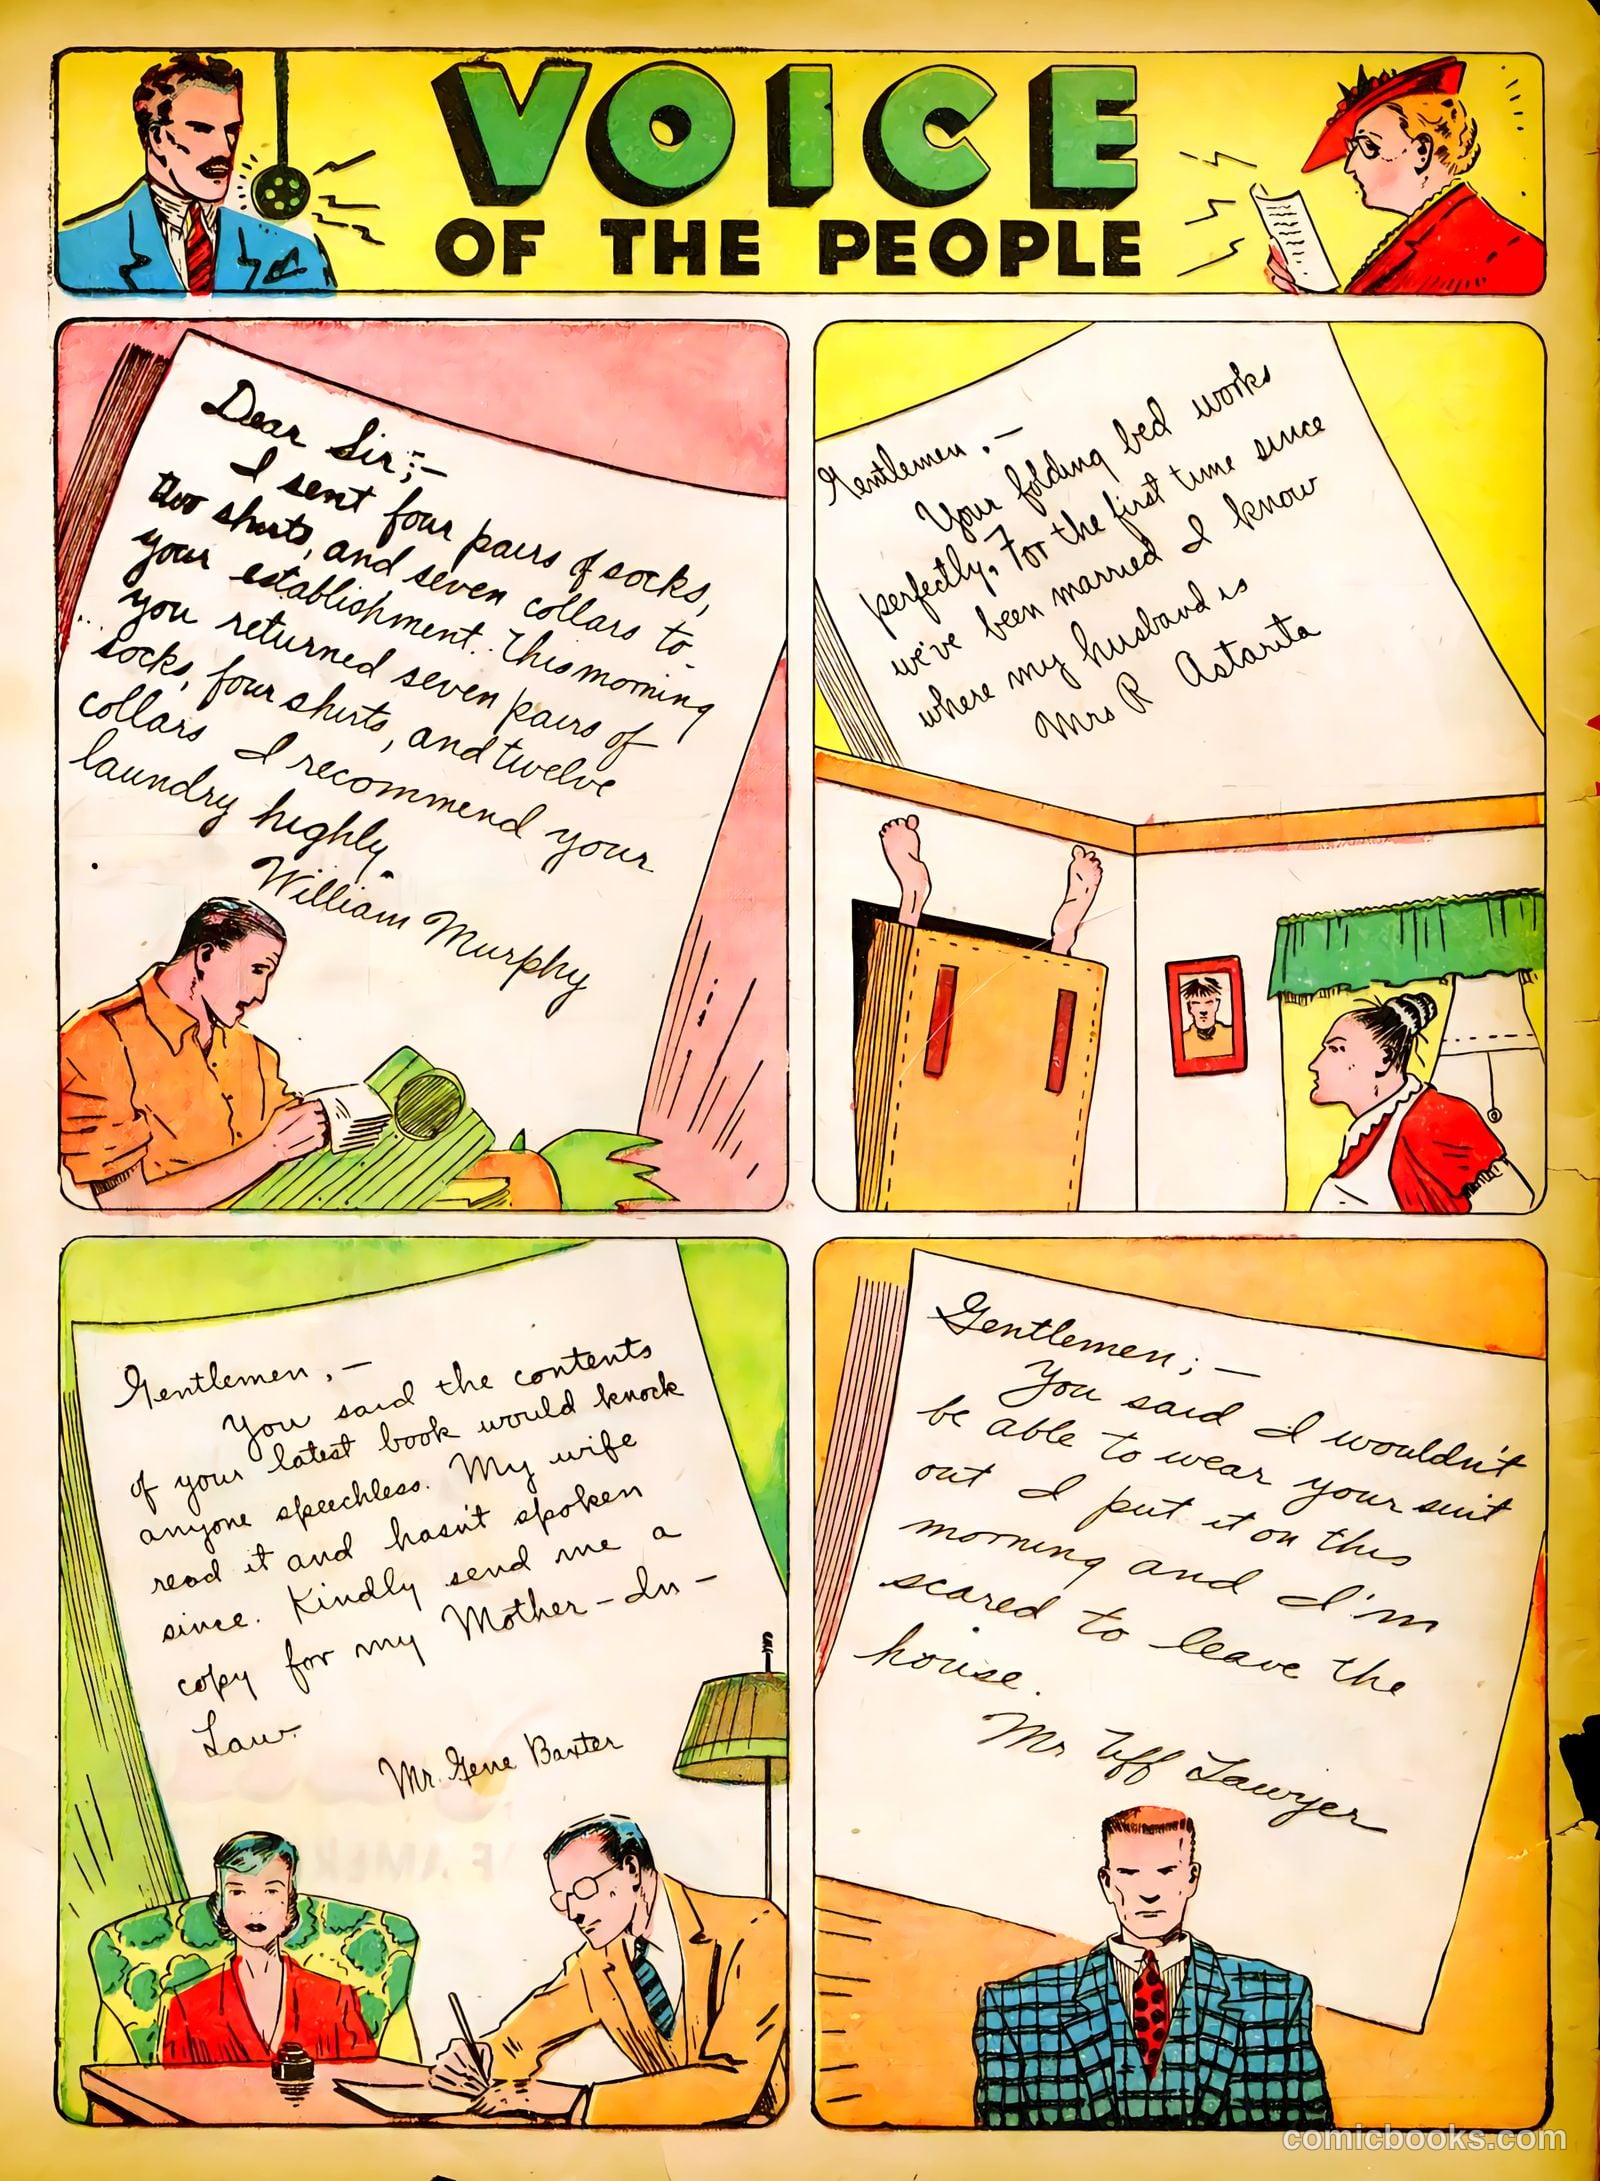 VOICE
OF THE PEOPLE
Dear Sir;—
I sent four pairs of socks,
two shirts, and seven collars to
your establishment. This morning
you returned seven pairs of
socks, four shirts, and twelve
collars I recommend your
laundry highly.
William Murphy
Gentlemen,—
Your folding bed works
perfectly, For the first time since
we've been married I know
where my husband is
Mrs R Astarita
Gentlemen,—
You said the contents
of your latest book would knock
anyone speechless. My wife
read it and hasn't spoken
since. Kindly send me a
copy for my Mother-In-
Law.
Mr. Gene Baxter
Gentlemen;—
You said I wouldn't
be able to wear your suit
out I put it on this
morning and I'm
scared to leave the
house.
Mr Uff Lawyer
comicbooks.com